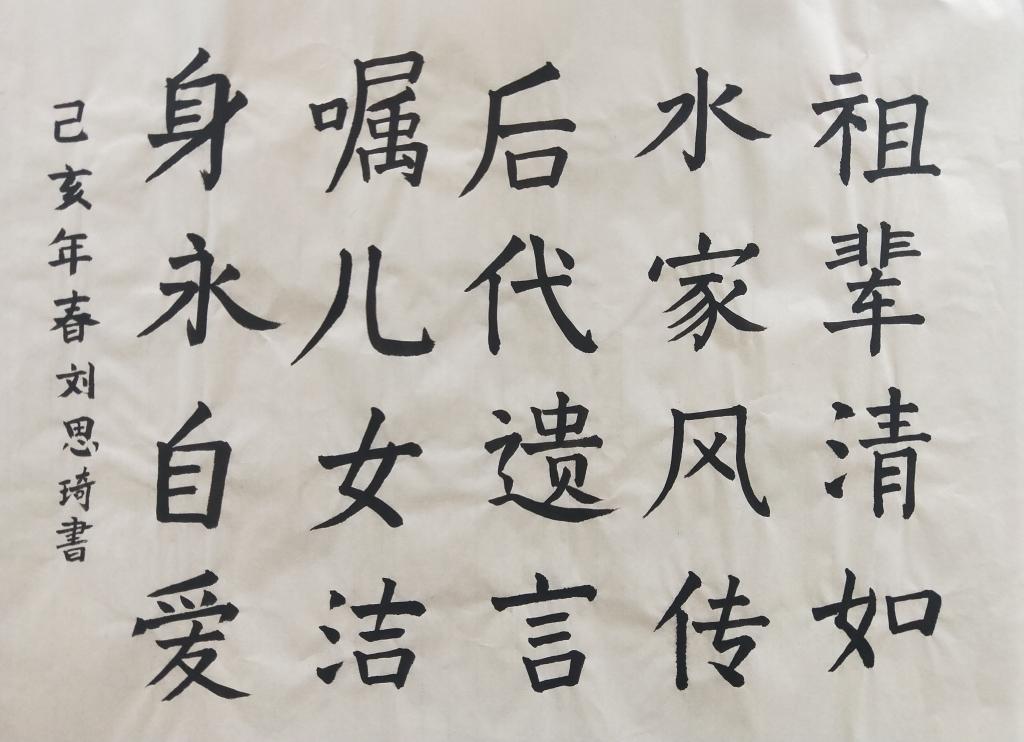 祖辈清如
水家风传
后代遗言
嘱儿女洁
身永自爱
己亥年春刘思琦書